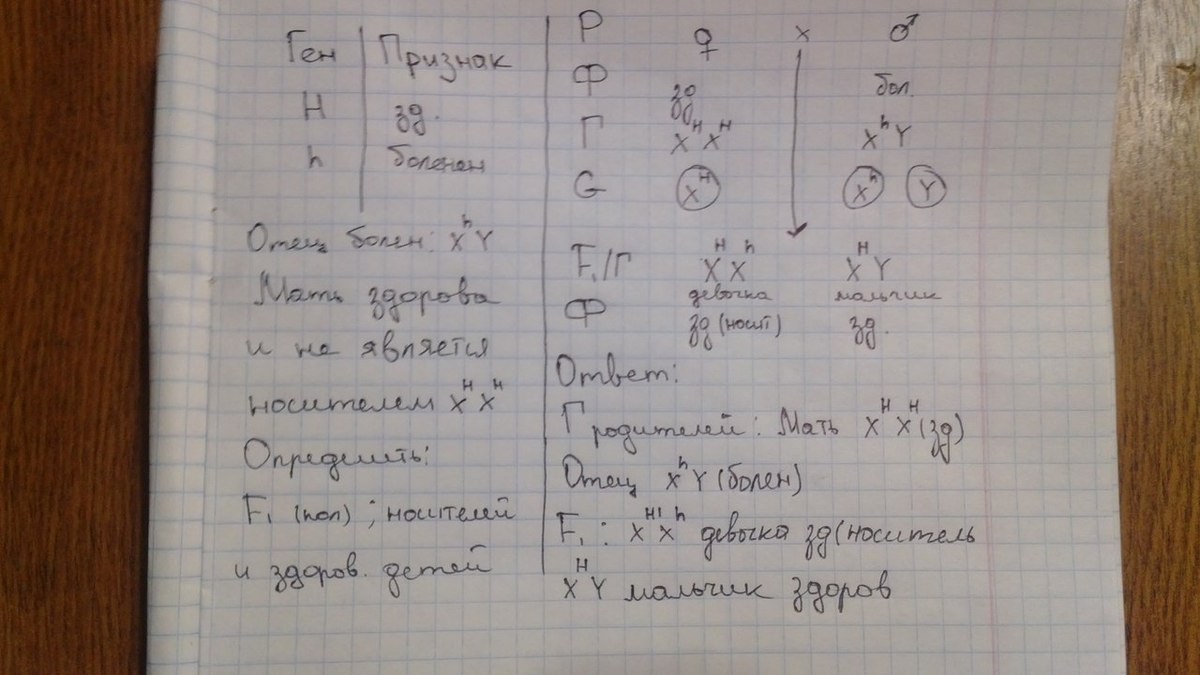 Ген | Признак
H | зд.
h | боленен
Отец болен: XʰY
Мать здорова
и не является
носителем XᴴXᴴ
Определить:
F₁ (пол) ; носителей
и здоров. детей
P ♀ x ♂
Ф зд бол.
Г XᴴXᴴ XʰY
G Xᴴ Xʰ Y
F₁/Г XᴴXʰ XᴴY
девочка мальчик
Ф зд (носит) зд.
Ответ:
Г родителей: Мать XᴴXᴴ (зд)
Отец XʰY (болен)
F₁ : XᴴXʰ девочка зд (носитель
XᴴY мальчик здоров